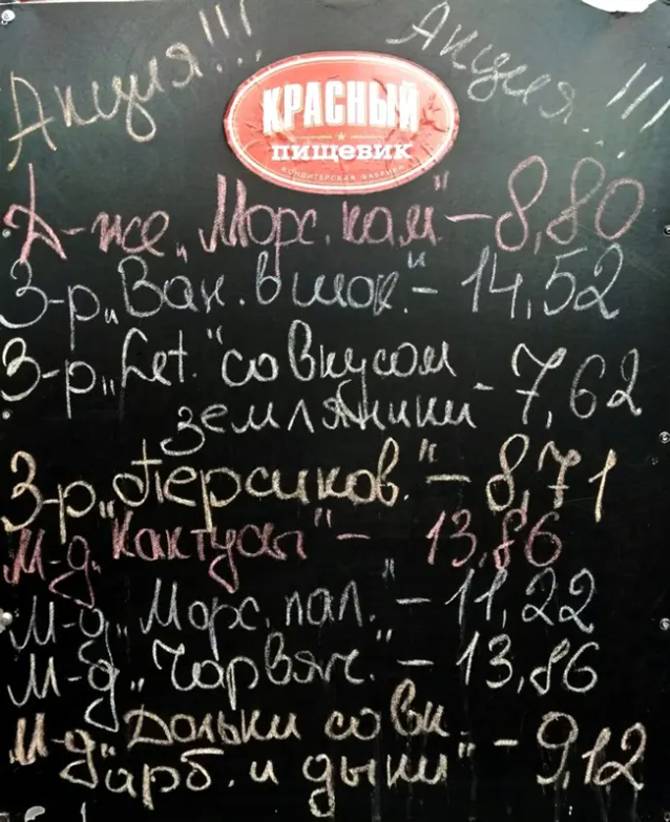 Акция!!! Акция...!!!
КРАСНЫЙ
ПИЩЕВИК
КОНДИТЕРСКАЯ ФАБРИКА
Д-же „Морс. кам" - 8,80
З-р „Ван. в шок." - 14,52
З-р „Let." со вкусом
земляники - 7,62
З-р „Персиков." - 8,71
М-д „Кактусы" - 13,86
М-д „Морс. пал." - 11,22
М-д „Чарвяч." - 13,86
М-д „Дольки со вк.
арб. и дыни" - 9,12